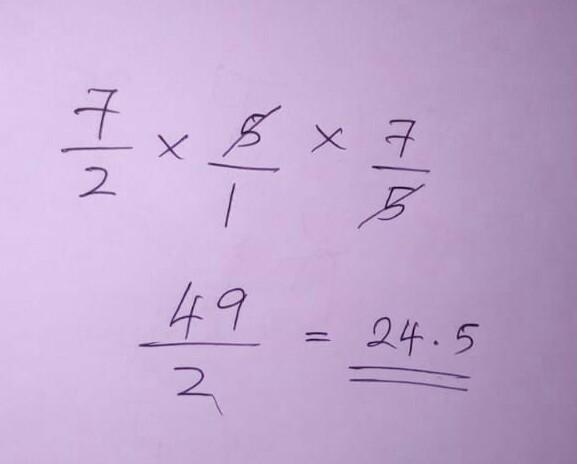 7/2 × 5/1 × 7/5
49/2 = 24.5